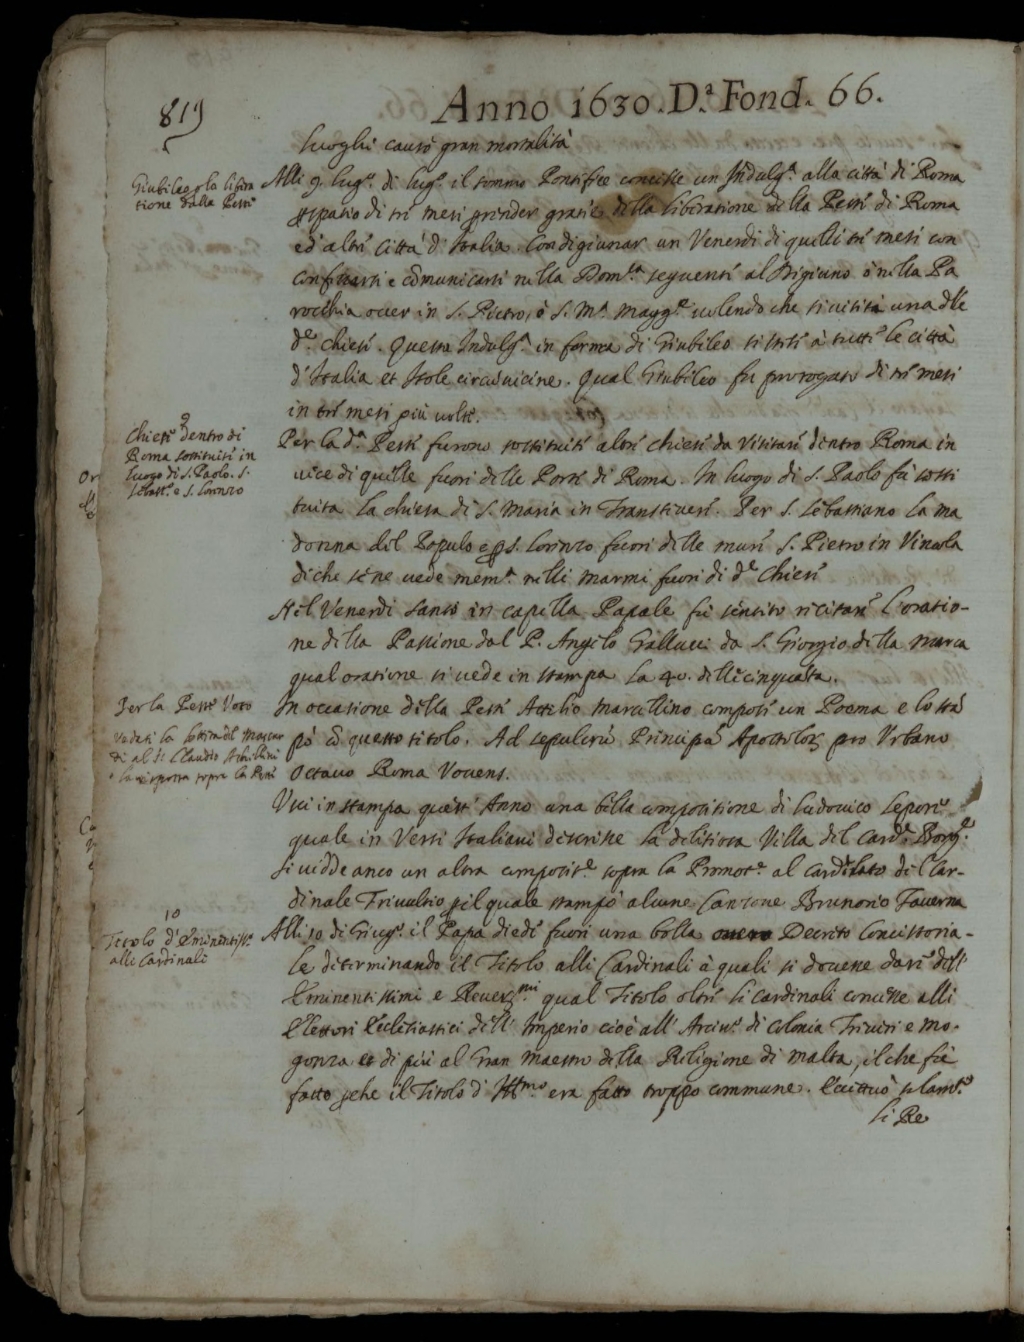 819
Anno 1630. D.ª Fond. 66.
luoghi causò gran mortalità
Giubileo p la libera
tione dalla Peste
Alli 9. lug.º di lug.º il sommo Pontefice concesse un Indulg.ª alla città di Roma
p spatio di tre mesi p render gratie della liberatione della Peste di Roma
ed altre Città d'Italia. Con digiunar un Venerdi di quelli tre mesi con
confessarsi e cõmunicarsi nella Dom.ca seguente al Digiuno ò nella Pa
rocchia over in S. Pietro, ò S. M.ª Magg.e volendo che si visiti una dlle
d.e chiese. Questa Indulg.ª in forma di Giubileo si stese à tutte le città
d'Italia et Isole circúvicine. Qual Giubileo fu prorogato di tre mesi
in tre mesi più volte.
9
Chiese dentro di
Roma sostituite in
luogo di S. Paolo. S.
Sebast.º e S. Lorenzo
Per la d.ª Peste furono sostituite altre chiese da Visitare dentro Roma in
vice di quelle fuori delle Porte di Roma. In luogo di S. Paolo fù sosti
tuita la chiesa di S. Maria in Transtevere. Per S. Sebastiano la ma
donna del Populo e p S. Lorenzo fuori delle mure S. Pietro in Vincola
di che se ne vede mem.ª nelli marmi fuori di d.e Chiese
Nel Venerdi Santo in capella Papale fu sentito recitare l'oratio-
ne della Passione dal P. Angelo Gallucci da S. Giorgio della marca
qual oratione si vede in stampa la 40. delle cinquãta.
Per la Peste Voto
Vedasi la lettera del Mascar
di al S.r Claudio Achillini
e la risposta sopra la Peste
In occasione della Peste Attilio Marcellino compose un Poema e lo stã
pò cõ questo titolo. Ad sepulcrú Principú Apostoloꝝ pro Urbano
Octavo Roma Vovens.
Usci in stampa quest'Anno una bella compositione di Ludovico Lepore
quale in Versi Italiani descrisse la delitiosa Villa del Card.e Borg.e
Si vidde anco un altra composit.e sopra la Promot.e al Cardinlato del Car-
dinale Trivultio p il quale stampò alcune Canzone Brunorio Taverna
10
Titolo d'Eminentiss.º
alli Cardinali
Alli 10 di Giug.º il Papa diede fuori una bolla overo Decreto Concistoria-
le determinando il Titolo alli Cardinali à quali si dovesse dare dell'
Eminentissimi e Reverẽ.mi qual Titolo oltre li Cardinali concesse alli
Elettori Ecclesiastici dell'Imperio cioè all'Arcive.º di Colonia Treviri e Mo-
gonza et di più al Gran Maestro della Religione di Malta, il che fù
fatto p che il Titolo d'Ill.mo era fatto troppo commune. Eccettuò solam.e
li Re